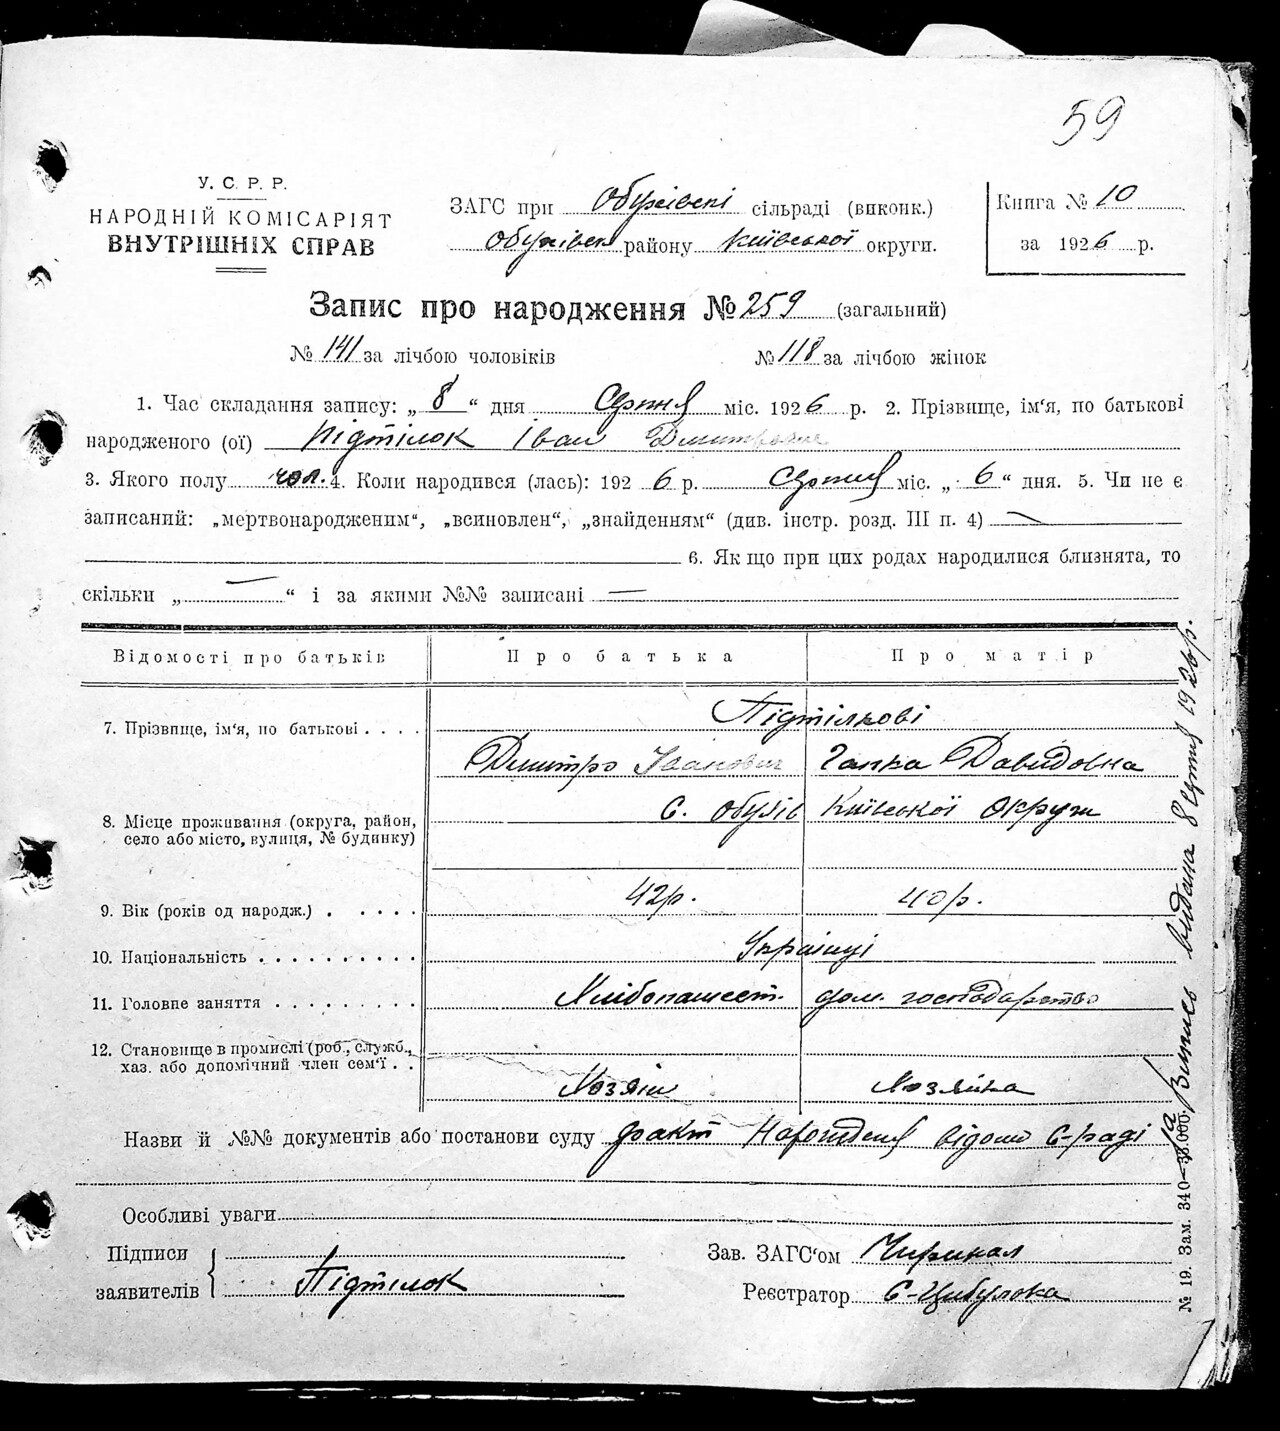 59
У. С. Р. Р.
НАРОДНІЙ КОМІСАРІЯТ
ВНУТРІШНІХ СПРАВ
ЗАГС при Обухівскі сільраді (виконк.)
Обухівськ району Київської округи.
Книга № 10
за 1926 р.
Запис про народження № 259 (загальний)
№ 141 за лічбою чоловіків № 118 за лічбою жінок
1. Час складання запису: „ 8 “ дня Серпня міс. 1926 р. 2. Прізвище, ім‘я, по батькові
народженого (ої) Підтілок Іван Дмитрович
3. Якого полу чол. 4. Коли народився (лась): 1926 р. Серпня міс. „ 6 “ дня. 5. Чи не є
записаний: „мертвонародженим“, „всиновлен“, „знайденням“ (див. інстр. розд. III п. 4) —
6. Як що при цих родах народилися близнята, то
скільки „ — “ і за якими №№ записані —
Відомості про батьків Про батька Про матір
7. Прізвище, ім‘я, по батькові . . . . Підтілкові
Дмитро Іванович Гапка Давидовна
8. Місце проживання (округа, район, село або місто, вулиця, № будинку) С. Обухів Київської Округи
9. Вік (років од народж.) . . . . . 42р. 40р.
10. Національність . . . . . . . . . . Українці
11. Головне заняття . . . . . . . . . Хлібопашест. дом. господарство
12. Становище в промислі (роб., служб., хаз. або допомічний член сем‘ї . . Хозяін Хозяйка
Назви й №№ документів або постанови суду факт Народження відомо С-раді
Особливі уваги
Підписи
заявителів Підтілок
Зав. ЗАГС‘ом
Реєстратор С-Цибулока
№ 19. Зам. 340—33.000.
Витись видана 8 серпня 1926р.